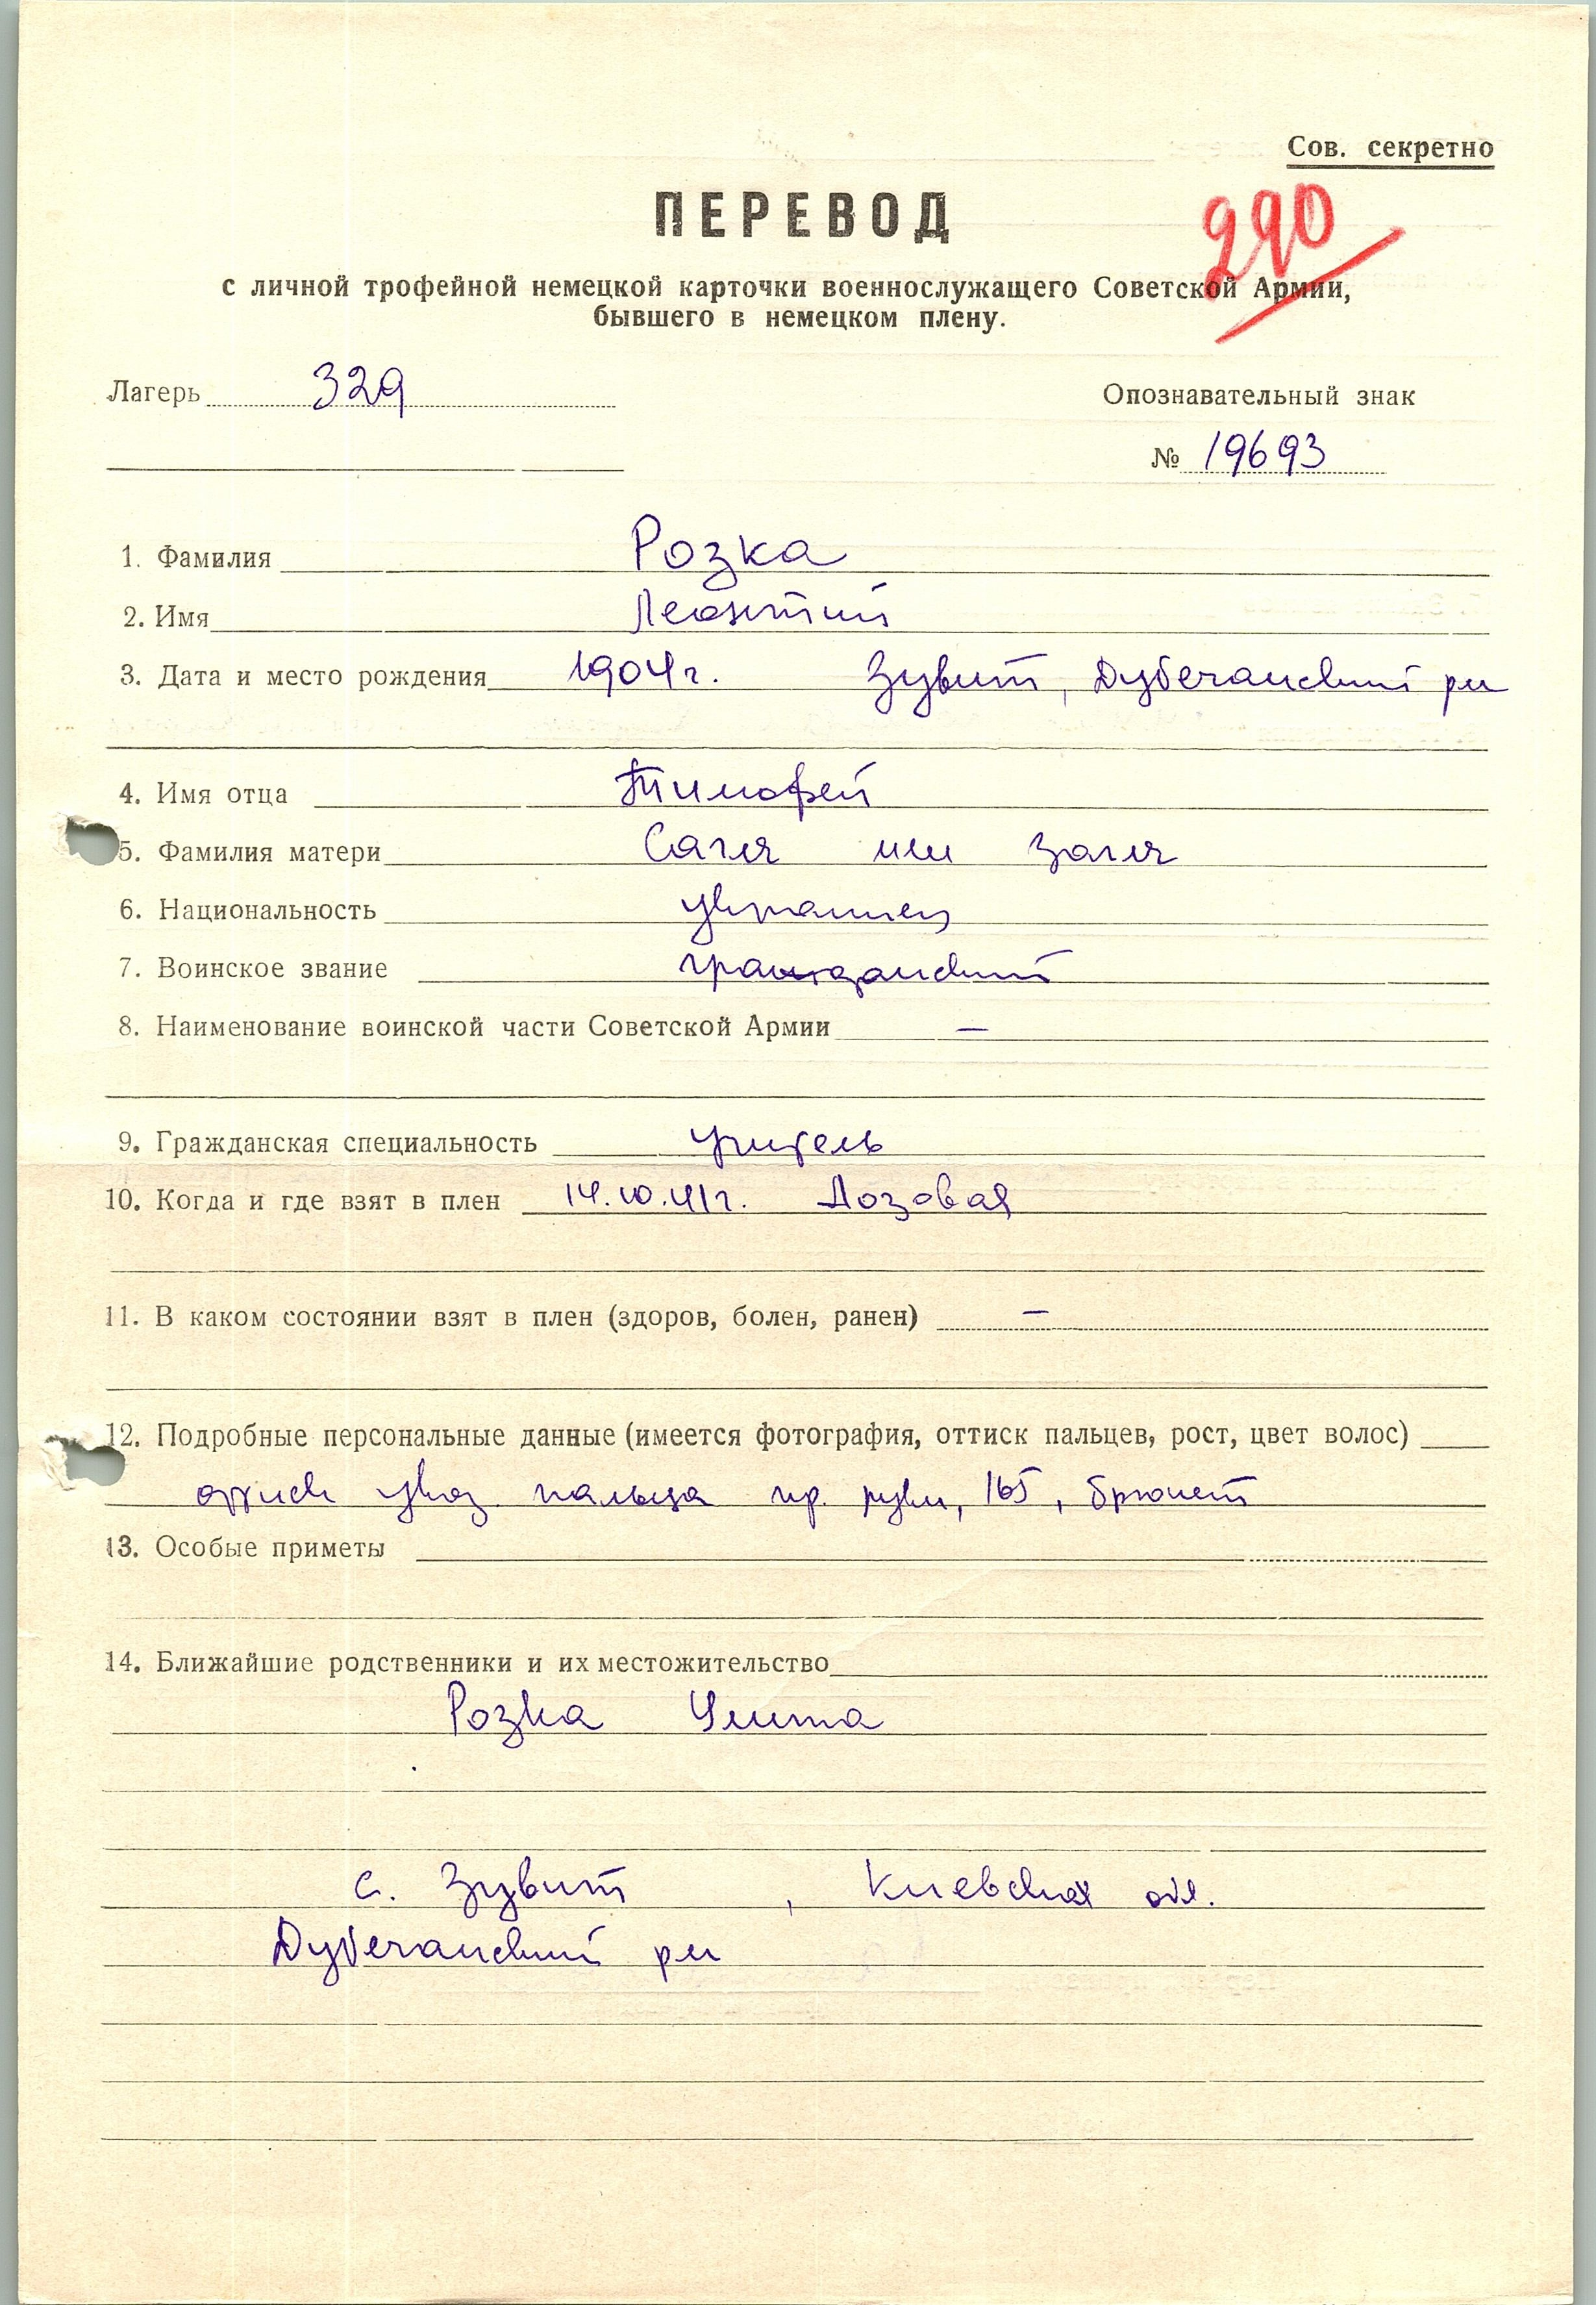 Сов. секретно
ПЕРЕВОД
290
с личной трофейной немецкой карточки военнослужащего Советской Армии,
бывшего в немецком плену.
Лагерь 329
Опознавательный знак
№ 19693
1. Фамилия Розка
2. Имя Леонтий
3. Дата и место рождения 1904 г. Зувит, Дубечанский рн
4. Имя отца Тимофей
5. Фамилия матери Сагля или Загля
6. Национальность украинец
7. Воинское звание гражданский
8. Наименование воинской части Советской Армии —
9. Гражданская специальность учитель
10. Когда и где взят в плен 14.10.41 г. Лозовая
11. В каком состоянии взят в плен (здоров, болен, ранен) —
12. Подробные персональные данные (имеется фотография, оттиск пальцев, рост, цвет волос)
оттиск указ. пальца пр. руки, 165, брюнет
13. Особые приметы
14. Ближайшие родственники и их местожительство
Розка
с. Зувит, Киевская обл.
Дубечанский рн